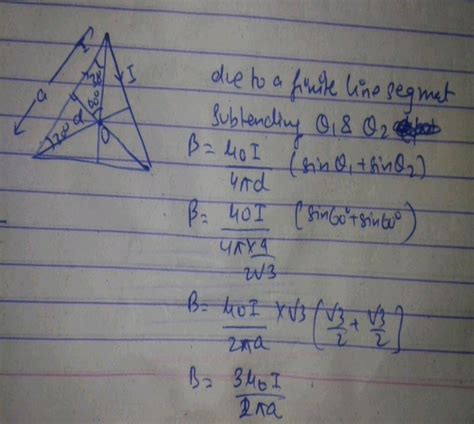 I
I
a
d
30°
60°
60°
120°
O
due to a finite line segmat
Subtending θ1 & θ2
B = μ0I / 4πd (sinθ1 + sinθ2)
B = μ0I / 4π × a/2√3 (sin60° + sin60°)
B = μ0I / 2πa × √3 [√3/2 + √3/2]
B = 3μ0I / 2πa